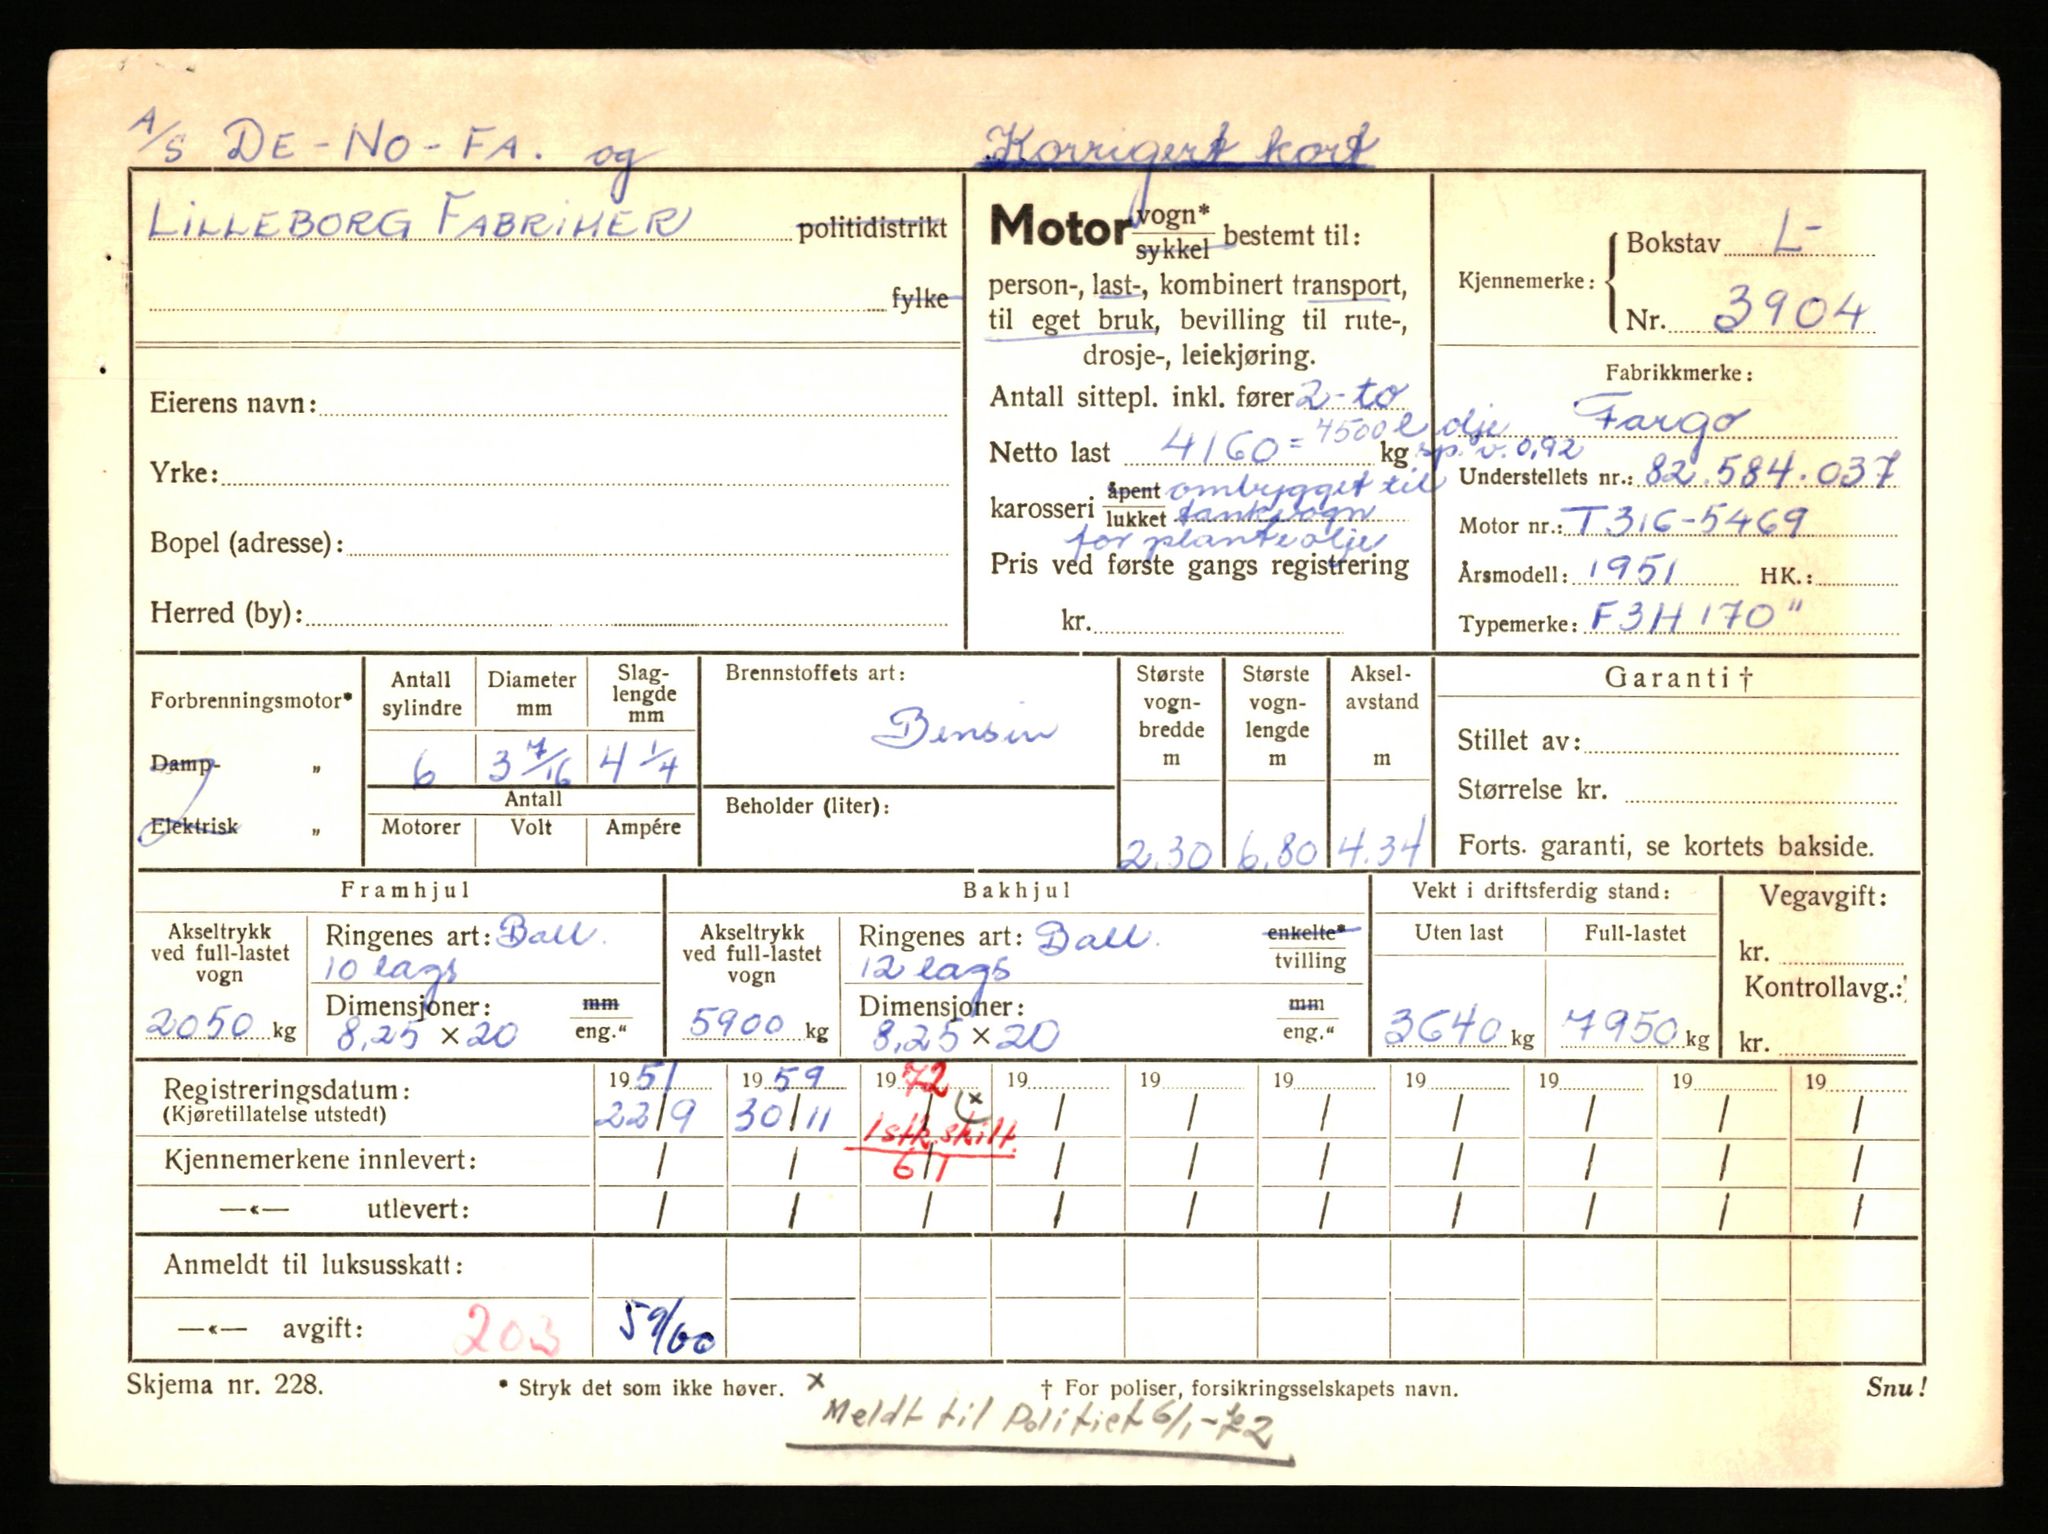 A/S DE-NO-FA. og
Korrigert kort
LILLEBORG FABRIKER politidistrikt
fylke
Eierens navn:
Yrke:
Bopel (adresse):
Herred (by):
Motor vogn* sykkel bestemt til:
person-, last-, kombinert transport,
til eget bruk, bevilling til rute-,
drosje-, leiekjøring.
Antall sittepl. inkl. fører 2-to
Netto last 4160 = kg 4500 l olje sp. v. 0,92
karosseri åpent lukket ombygget til
tankvogn
for planteolje
Pris ved første gangs registrering
kr.
Kjennemerke: Bokstav L-
Nr. 3904
Fabrikkmerke:
Fargo
Understellets nr.: 82.584.037
Motor nr.: T.316-5469
Årsmodell: 1951 HK.:
Typemerke: F3H 170"
Forbrenningsmotor*
Damp- „
Elektrisk „
Antall sylindre
6
Diameter mm
3 7/16
Slag-
lengde
mm
4 1/4
Antall
Motorer Volt Ampére
Brennstoffets art:
Bensin
Beholder (liter):
Største
vogn-
bredde
m
2.30
Største
vogn-
lengde
m
6.80
Aksel-
avstand
m
4.34
Garanti †
Stillet av:
Størrelse kr.
Forts. garanti, se kortets bakside.
Framhjul
Akseltrykk
ved full-lastet
vogn
2050 kg
Ringenes art: Ball.
10 lags
Dimensjoner: mm
8,25 × 20 eng."
Bakhjul
Akseltrykk
ved full-lastet
vogn
5900 kg
Ringenes art: Ball. enkelte*
12 lags tvilling
Dimensjoner: mm
8,25 × 20 eng."
Vekt i driftsferdig stand:
Uten last Full-lastet
3640 kg 7950 kg
Vegavgift:
kr.
Kontrollavg.:
kr.
Registreringsdatum: 1951 1959 1972 19 19 19 19 19 19 19
(Kjøretillatelse utstedt) 22/9 30/11 / (x / / / / / / /
1 stk. skilt.
Kjennemerkene innlevert: / / 6/1 / / / / / / /
—«— utlevert: / / / / / / / / / /
Anmeldt til luksusskatt:
—«— avgift: 203 59/60
Skjema nr. 228.
* Stryk det som ikke høver.
† For poliser, forsikringsselskapets navn.
Snu!
x Meldt til Politiet 6/1-72